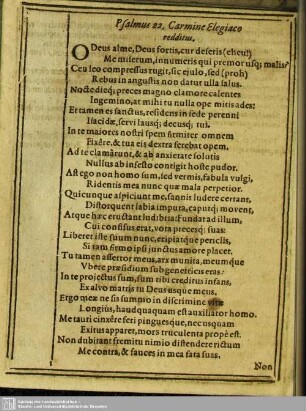 Psalmus 22. Carmine Elegiaco
redditus.
O Deus alme, Deus fortis, cur deseris (eheu!)
Me miserum, innumeris qui premor usq; malis?
Ceu leo compressus rugit, sic ejulo, sed (proh)
Rebus in angustis non datur ulla salus.
Nocte dieq; preces magno clamore calentes
Ingemino, at mihi tu nulla ope mitis ades:
Et tamen es sanctus, residens in sede perenni
Isacidæ, servi lausq; decusq; tui.
In te majores nostri spem firmiter omnem
Fixêre, & tua eis dextra ferebat opem.
Ad te clamârunt, & ab anxietate soluti
Nullus ab infesto contigit hoste pudor.
Ast ego non homo sum, sed vermis, fabula vulgi,
Ridentis mea nunc quæ mala perpetior.
Quicunque aspiciunt me, sannit ludere certant,
Distorquent labia impura, caputq; movent,
Atque hæc eructant ludibria: Fundat ad illum,
Cui confisus erat, vota precesq; suas:
Liberet iste suum nunc, eripiatque periclis,
Si tam firmo ipsi junctus amore placet.
Tu tamen assertor meus, arx munita, meumque
Ubere præsidium sub geneticis eras:
In te projectus sum, sum tibi creditus infans,
Ex alvo matris tu Deus usque meus,
Ergo mox ne sis summo in discrimine
Longius, haudquaquam est auxiliator homo.
Me tauri cinxêre feri pingues que, nec usquam
Exitus apparet, mors truculenta propè est.
Non dubitant fremitu nimio distendere rictum
Me contra, & fauces in mea fata suas.
Non